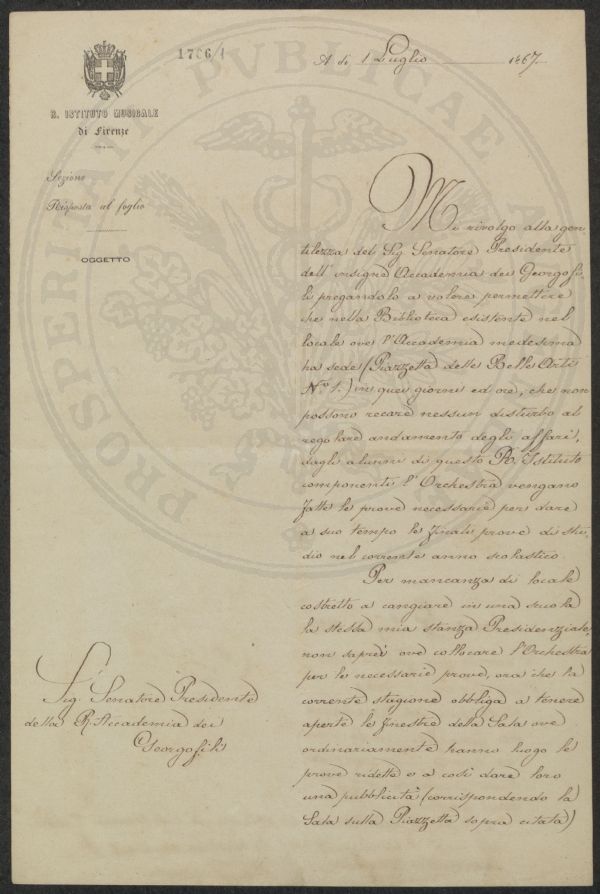 1706/1
A dì 1 Luglio 1867
R. ISTITUTO MUSICALE
di Firenze
Sezione
Risposta al foglio
OGGETTO
Mi rivolgo alla gen
tilezza del Sig. Senatore Presidente
dell'insigne Accademia dei Georgofi-
li pregandolo a volere permettere
che nella Biblioteca esistente nel
locale ove l'Accademia medesima
ha sede (Piazzetta delle Belle Arti
N.º 1.) in quei giorni ed ore, che non
possono recare nessun disturbo al
regolare andamento degli affari,
dagli alunni di questo R. Istituto
componenti l'Orchestra vengano
fatte le prove necessarie per dare
a suo tempo le finali prove di stu
dio nel corrente anno scolastico.
Per mancanza di locale
costretto a cangiare in una scuola
la stessa mia stanza Presidenziale,
non saprei ove collocare l'Orchestra
per le necessarie prove, ora che la
corrente stagione obbliga a tenere
aperte le finestre della Sala ove
ordinariamente hanno luogo le
prove ridette e a così dare loro
una pubblicità (corrispondendo la
Sala sulla Piazzetta sopra citata)
Sig. Senatore Presidente
della R. Accademia dei
Georgofili
PROSPERITATI PVBLICAE